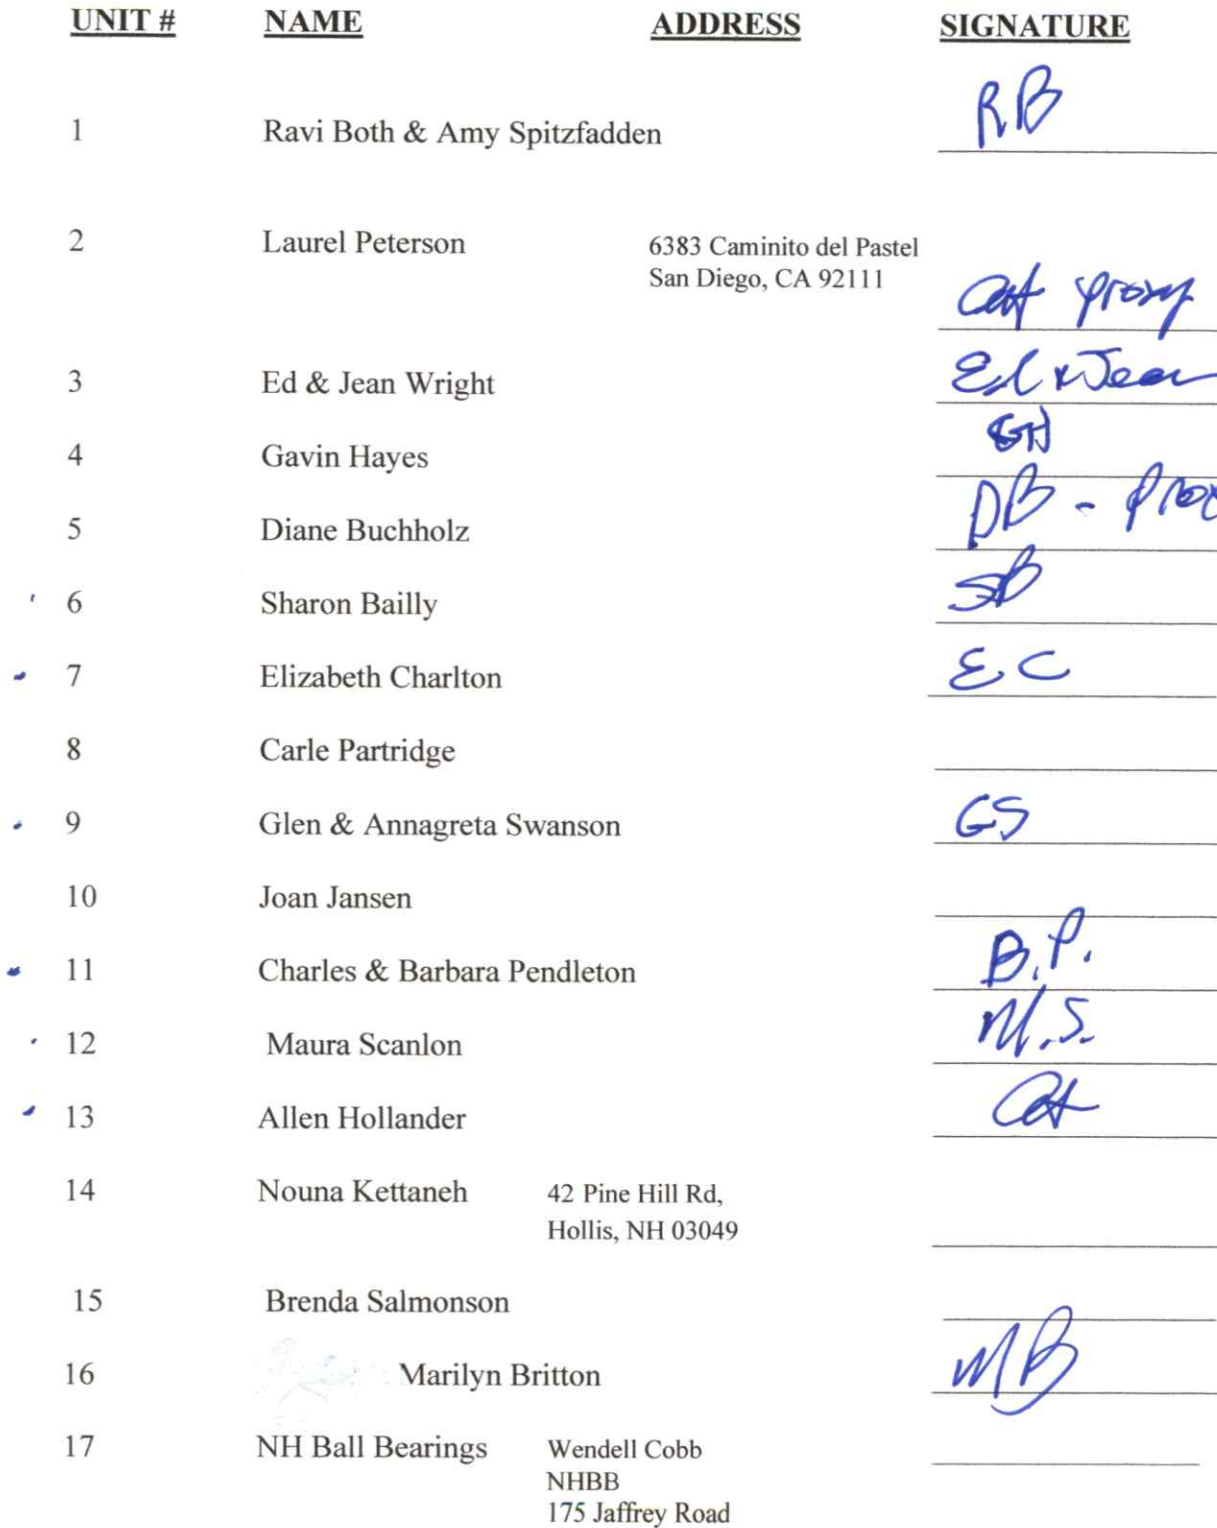 UNIT # NAME ADDRESS SIGNATURE
1 Ravi Both & Amy Spitzfadden RB
2 Laurel Peterson 6383 Caminito del Pastel
San Diego, CA 92111
proxy
3 Ed & Jean Wright Ed & Jean
4 Gavin Hayes GH
5 Diane Buchholz DB - Prox
6 Sharon Bailly SB
7 Elizabeth Charlton E.C
8 Carle Partridge
9 Glen & Annagreta Swanson GS
10 Joan Jansen
11 Charles & Barbara Pendleton B.P.
12 Maura Scanlon M.S.
13 Allen Hollander
14 Nouna Kettaneh 42 Pine Hill Rd,
Hollis, NH 03049
15 Brenda Salmonson
16 Marilyn Britton MB
17 NH Ball Bearings Wendell Cobb
NHBB
175 Jaffrey Road